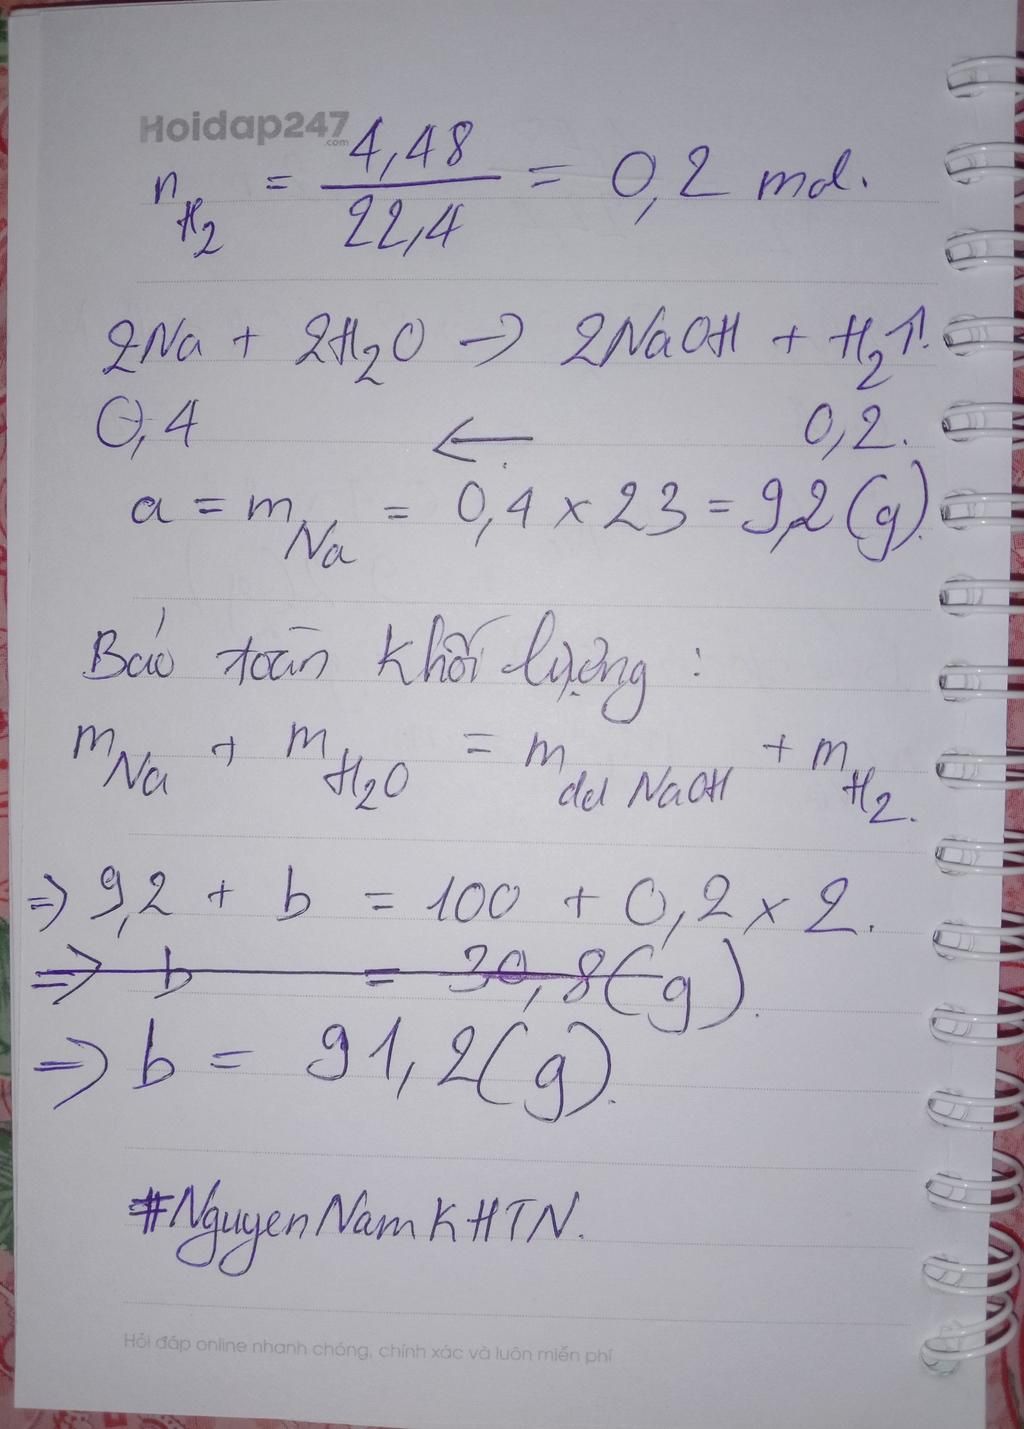 Hoidap247
.com
n_H2 = 4,48 / 22,4 = 0,2 mol.
2Na + 2H2O → 2NaOH + H2↑.
0,4 ← 0,2.
a = m_Na = 0,4 × 23 = 9,2 (g).
Bảo toàn khối lượng :
m_Na + m_H2O = m_dd NaOH + m_H2.
⇒ 9,2 + b = 100 + 0,2 × 2.
⇒ b = 30,8 (g).
⇒ b = 91,2 (g).
#NguyenNamKHTN.
Hỏi đáp online nhanh chóng, chính xác và luôn miễn phí